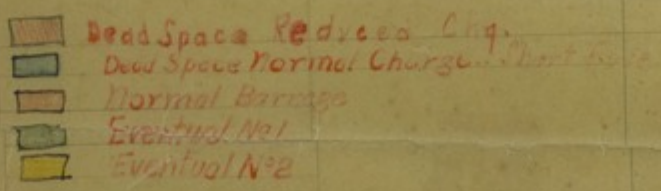 Dead Space Reduced Chg.
Dead Space Normal Charge. Short Fuse
Normal Barrage
Eventual No1
Eventual No2